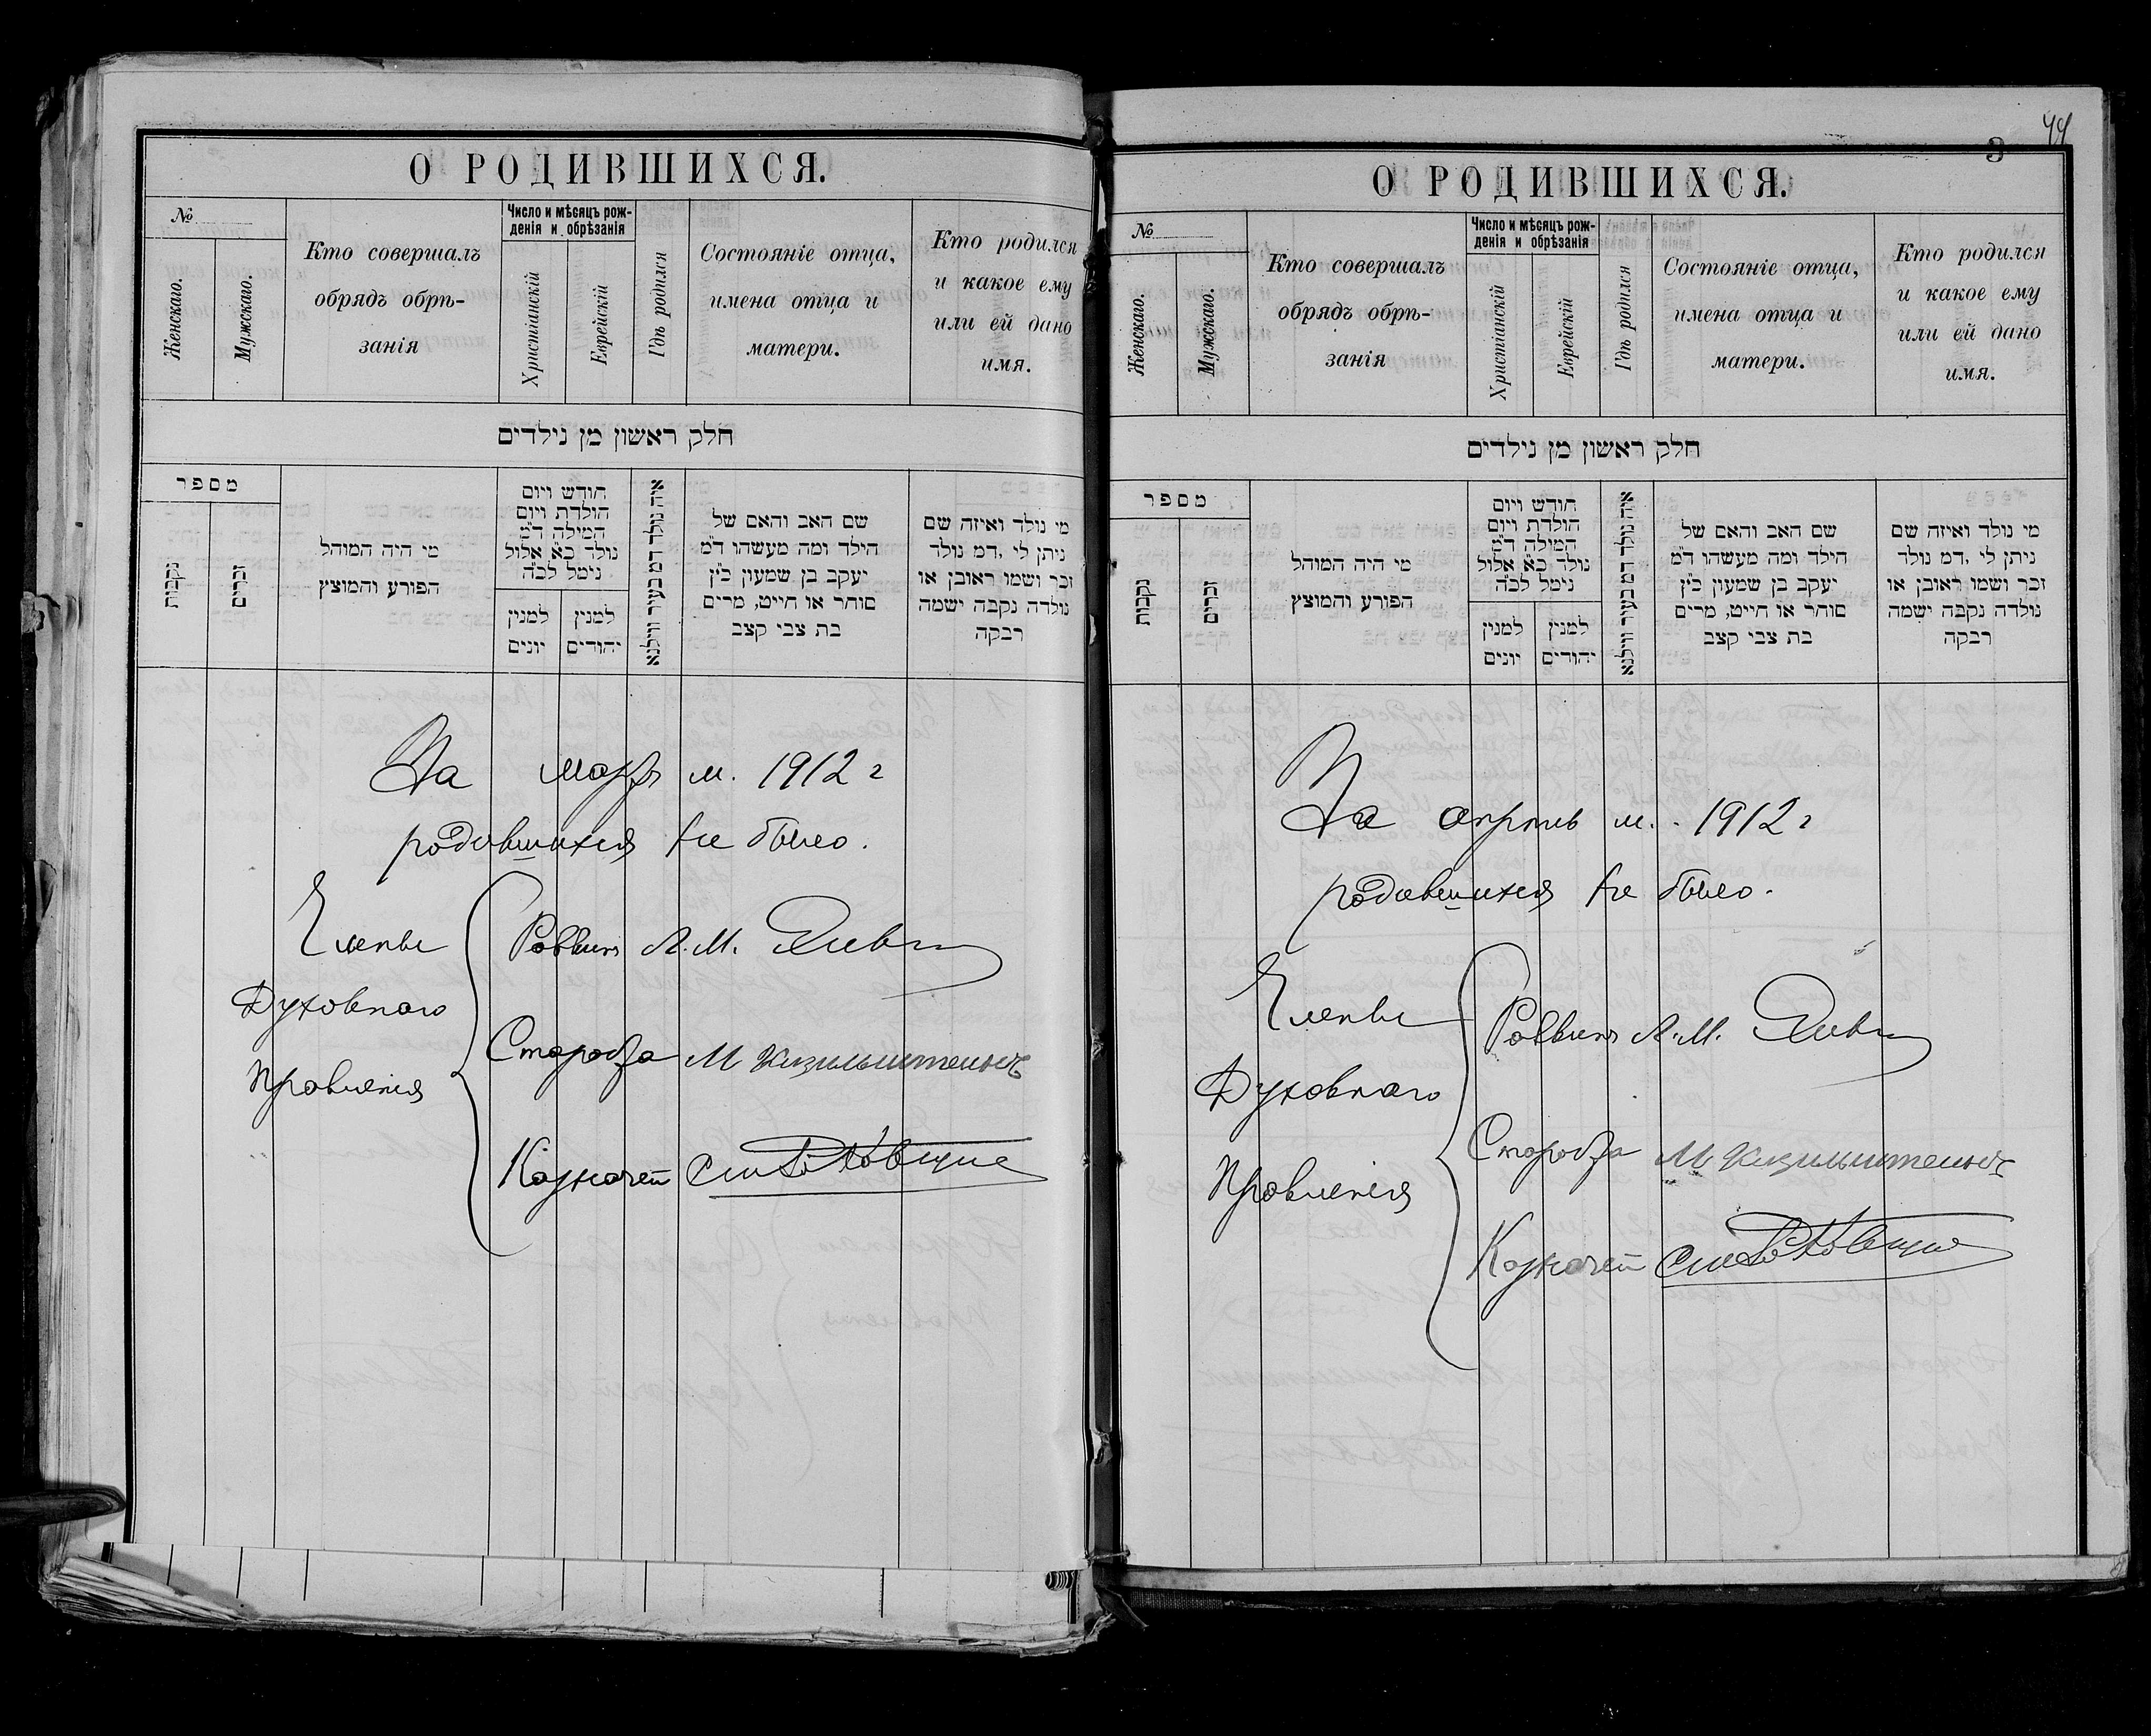 О РОДИВШИХСЯ.
№
Женскаго.
Мужскаго.
Кто совершалъ
обрядъ обрѣ-
занія
Число и мѣсяцъ рож-
денія и обрѣзанія
Христіанскій
Еврейскій
Гдѣ родился
Состояніе отца,
имена отца и
матери.
Кто родился
и какое ему
или ей дано
имя.
חלק ראשון מן נילדים
מספר
נקבות
זכרים
מי היה המוהל
הפורע והמוצץ
חודש ויום
הולדת ויום
המילה ד״מ
נולד כ״א אלול
נימל לכ״ה
למנין
יונים
למנין
יהודים
איה נולד דמ בעיר ווילנא
שם האב והאם של
הילד ומה מעשהו ד״מ
יעקב בן שמעון כ״ץ
סוחר או חייט, מרים
בת צבי קצב
מי נולד ואיזה שם
ניתן לי, דמ נולד
זכר ושמו ראובן או
נולדה נקבה ישמה
רבקה
За мартъ м. 1912 г
родившихся не было.
Члены
Духовнаго
Правленія
Раввинъ А. М.
Староста М
Казначей
44
3
О РОДИВШИХСЯ.
№
Женскаго.
Мужскаго.
Кто совершалъ
обрядъ обрѣ-
занія
Число и мѣсяцъ рож-
денія и обрѣзанія
Христіанскій
Еврейскій
Гдѣ родился
Состояніе отца,
имена отца и
матери.
Кто родился
и какое ему
или ей дано
имя.
חלק ראשון מן נילדים
מספר
נקבות
זכרים
מי היה המוהל
הפורע והמוצץ
חודש ויום
הולדת ויום
המילה ד״מ
נולד כ״א אלול
נימל לכ״ה
למנין
יונים
למנין
יהודים
איה נולד דמ בעיר ווילנא
שם האב והאם של
הילד ומה מעשהו ד״מ
יעקב בן שמעון כ״ץ
סוחר או חייט, מרים
בת צבי קצב
מי נולד ואיזה שם
ניתן לי, דמ נולד
זכר ושמו ראובן או
נולדה נקבה ישמה
רבקה
За апрѣль м. 1912 г
родившихся не было.
Члены
Духовнаго
Правленія
Раввинъ А. М.
Староста М
Казначей